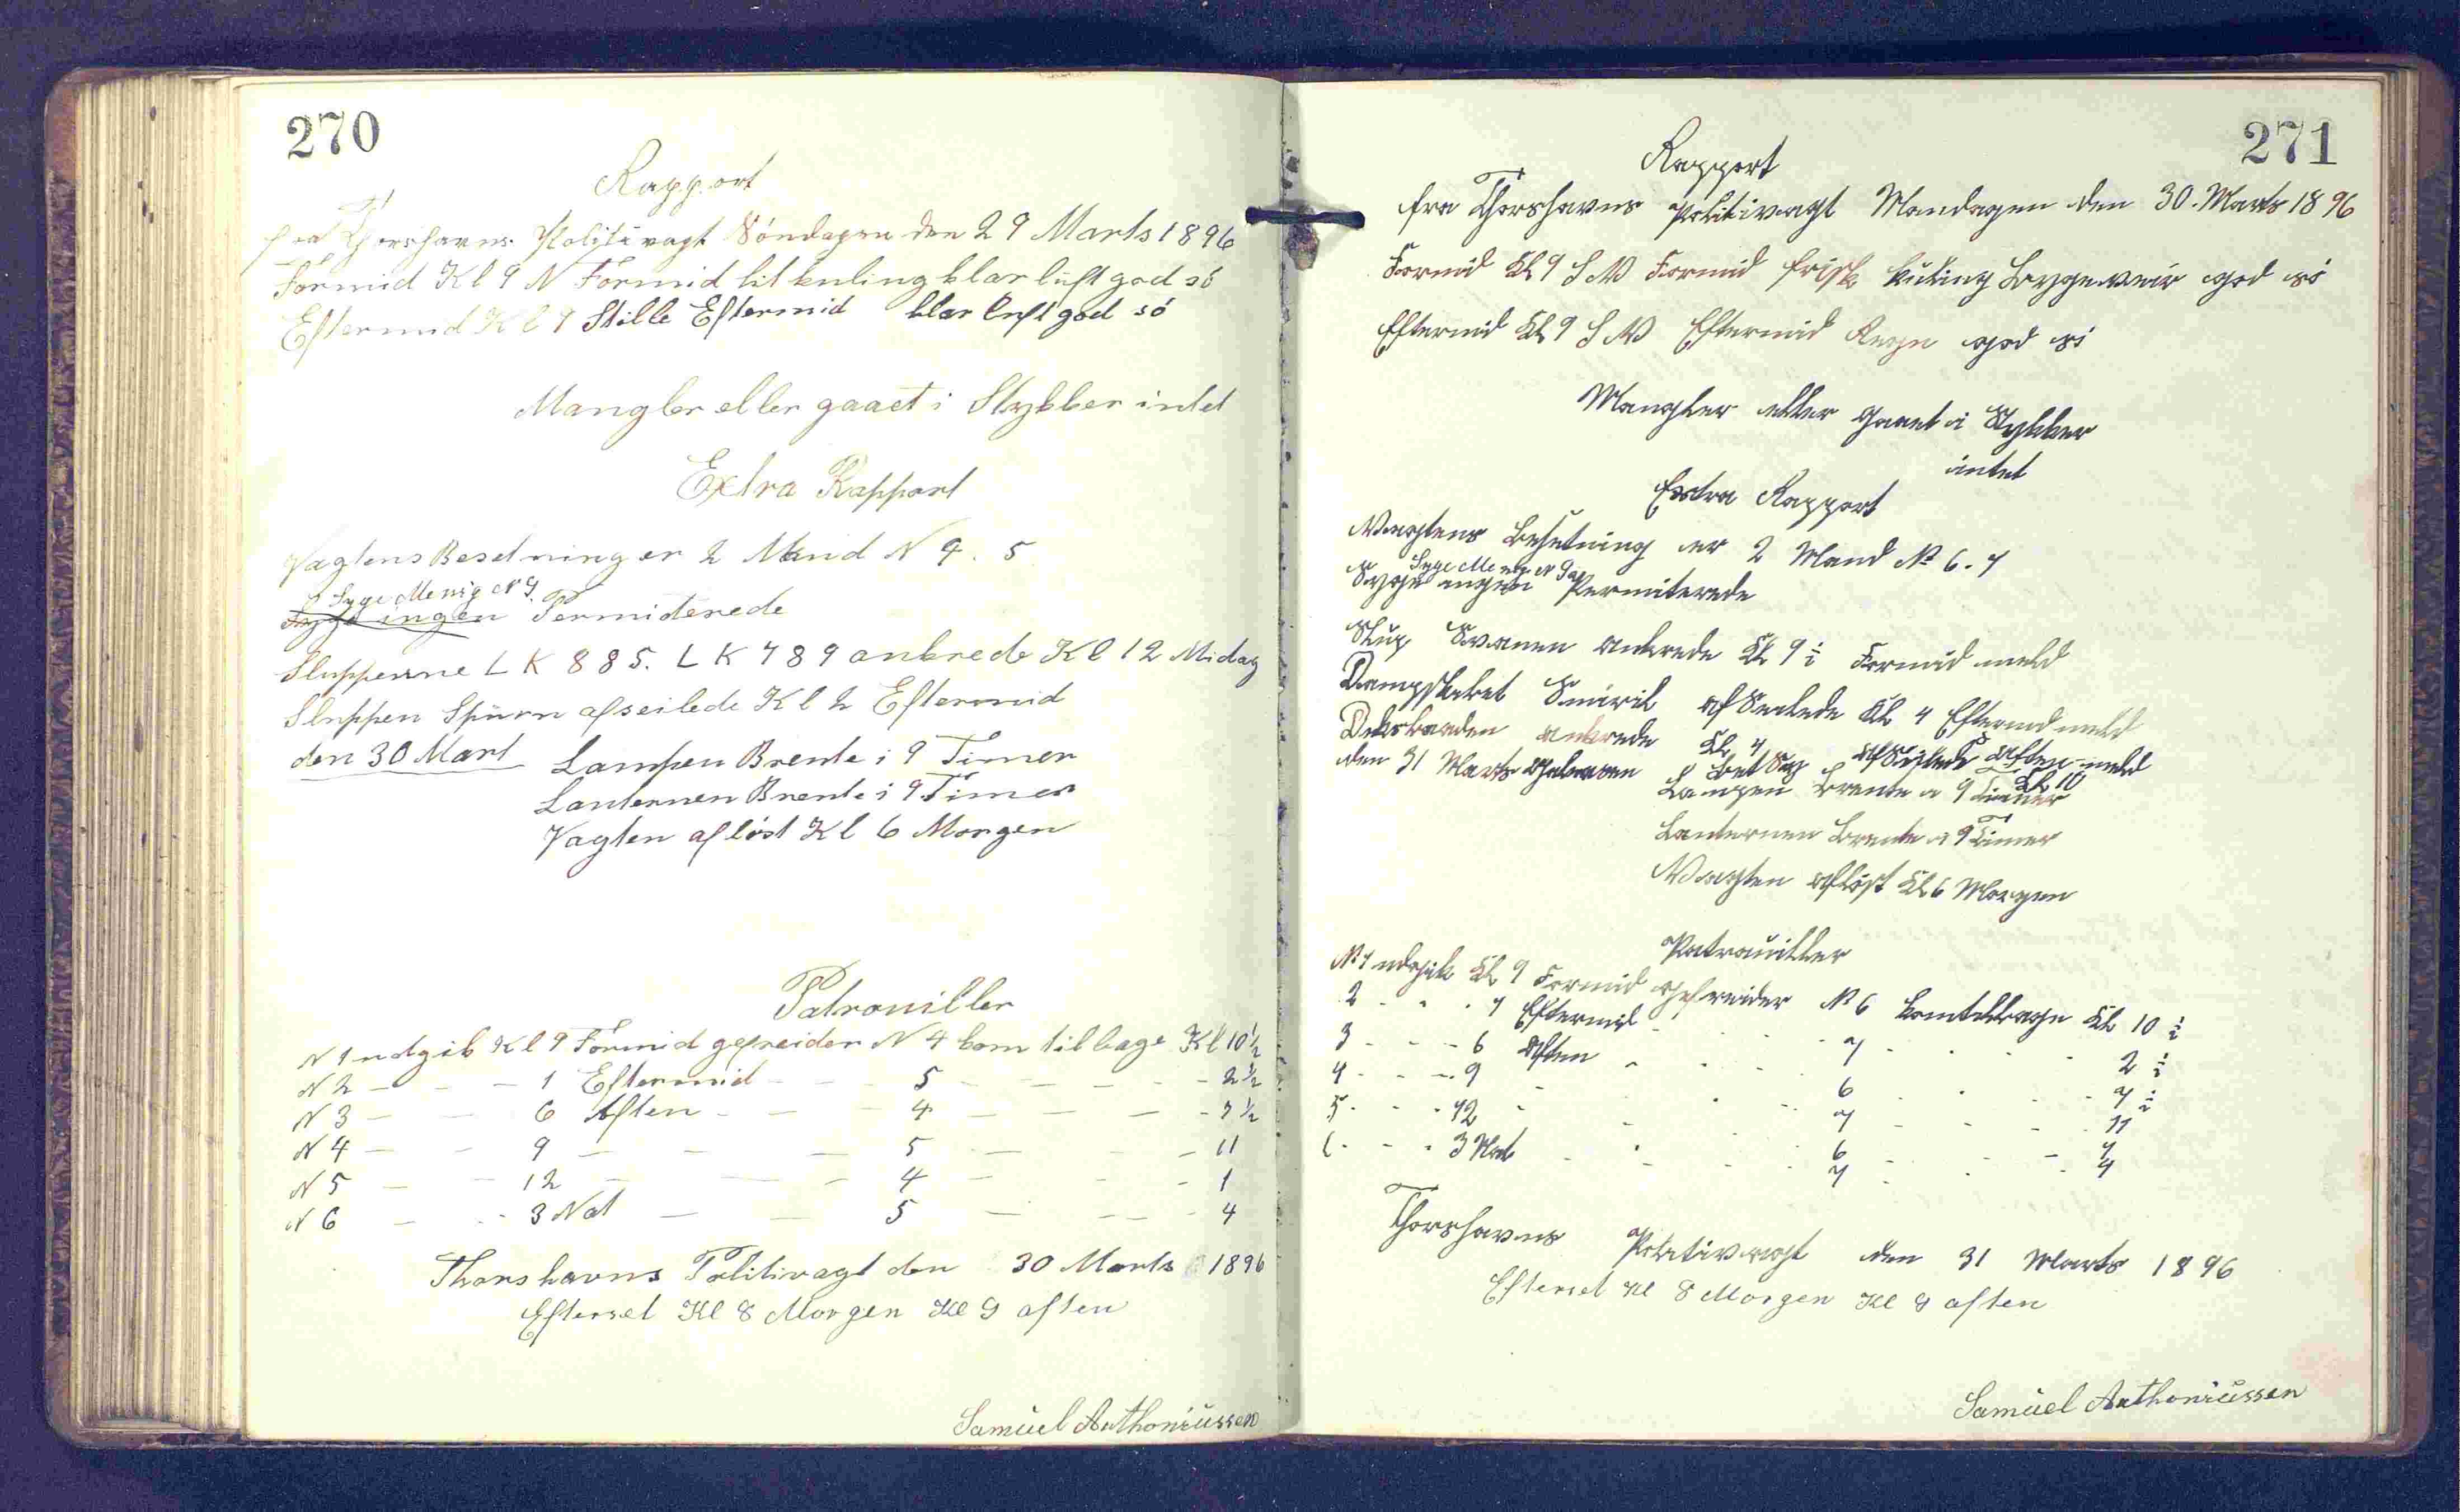 270
Rapport
fra Thorshavns Politivagt Söndagen den 29 Marts 1896
Formid Kl 9 N Formid lit kuling klar luft god só
Eftermid Kl 9 Stille Eftermid klar luft god só
Mangler eller gaaet i Stykker intet
Extra Rapport
Vagtens Besetning er 2 Mand N 4. 5
Syge Menig N 9.
Syge ingen Permiterede
Slupperne LK 885. LK 789 ankrede Kl 12 Midag
Sluppen Spurn afseilede Kl 2 Eftermid
den 30 Mart Lampen Brente i 9 Timer
Lanternen Brente i 9 Timer
Vagten aflöst Kl 6 Morgen
Patrouiller
N 1 udgik Kl 9 Formid gefreider N 4 kom tilbage Kl 10 1/2
N 2 — — — 1 Eftermid - - 5 — — — - 2 1/2
N 3 — — 6 Aften - — - 4 — — — - 7 1/2
N 4 — - 9 — — — 5 — - - 11
N 5 — - 12 — — - 4 — - - 1
N 6 — - - 3 Nat — — 5 — — - 4
Thorshavns Politivagt den 30 Marts 1896
Efterset Kl 8 Morgen Kl 9 aften
Samúel Anthoniússen
271
Rapport
fra Thorshavns Politivagt Mandagen den 30. Marts 1896
Formid Kl 9 S V Formid frisk kuling Bygeveir god só
Eftermid Kl 9 S V Eftermid Regn god só
Mangler eller gaaet i Stykker
intet
Extra Rapport
Vagtens Besetning er 2 Mand No 6. 7
Syge Menig N 9
Syge ingen Permiterede
Slup Svanen Ankrede Kl 9 1/2 Formid meld
Dampskibet Smiril af Seilede Kl 4 Eftermid meld
Deksbaaden ankrede Kl 7 afseilede Aften meld
Kl 10
den 31 Marts Lampen Brente i 9 Timer
Lanternen Brente i 9 Timer
Vagten aflöst Kl 6 Morgen
Patrouiller
No 1 udgik Kl 9 Formid gefreider No 6 kom tilbage Kl 10 1/2
2 - - - 1 Eftermid - - 7 - - - 2 1/2
3 - - - 6 Aften - - - 6 - - - 7 1/2
4 - - - 9 - - - 7 - - - 11
5 - - - 12 - - - 6 - - - 1
6 - - - 3 Nat - - - 7 - - - 4
Thorshavns Politivagt den 31 Marts 1896
Efterset Kl 8 Morgen Kl 9 aften
Samúel Anthoniússen